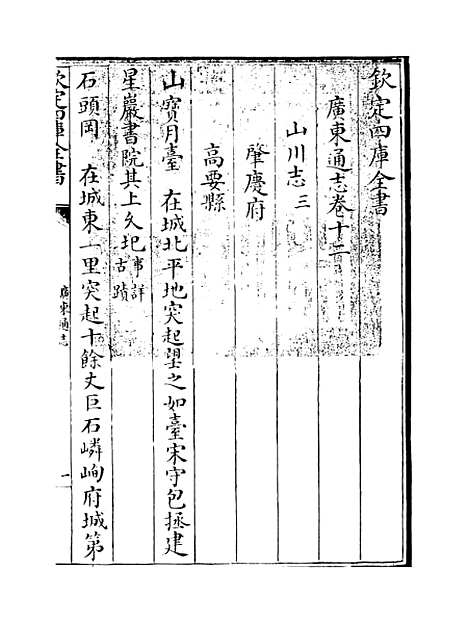 欽定四庫全書
廣東通志卷十二
山川志三
肇慶府
高要縣
山寶月臺 在城北平地突起望之如臺宋守包拯建
星巖書院其上久圯事詳古蹟
石頭岡 在城東一里突起十餘丈巨石嶙峋府城第
欽定四庫全書
廣東通志
一